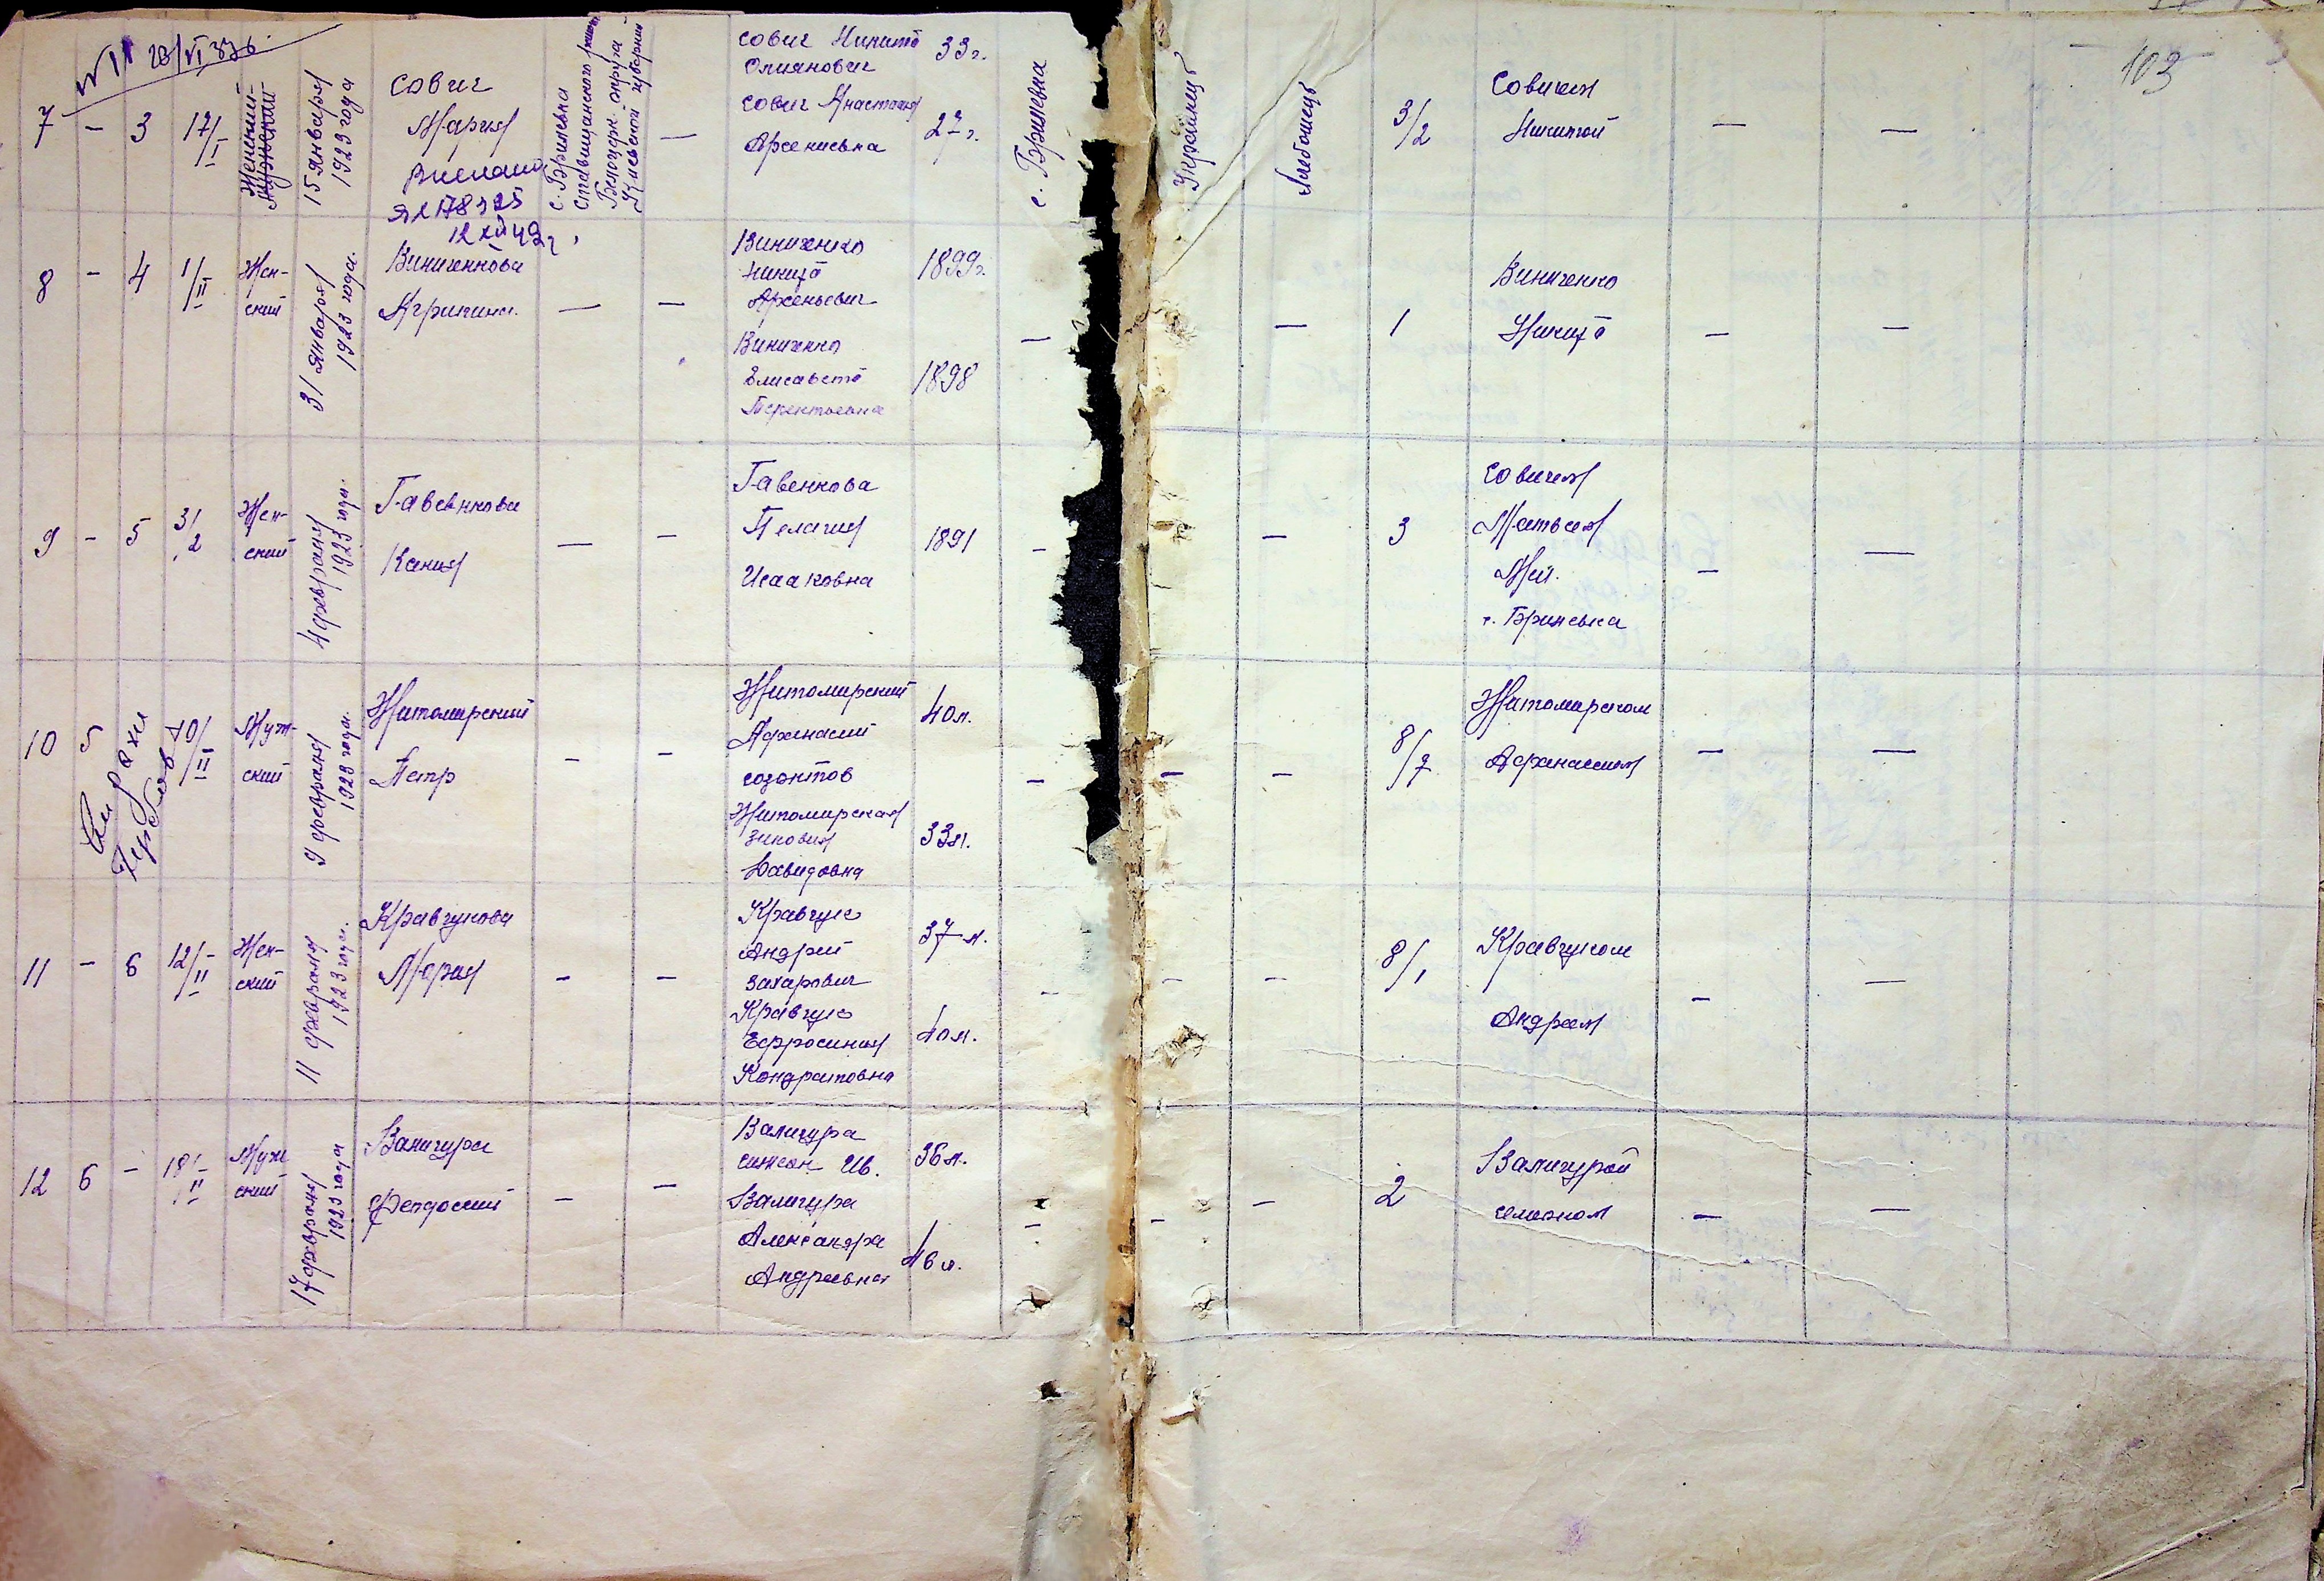 103
28/VI 37 г.
7 - 3 17/I
Женский
мужский
15 января
1923 года
Сович
Мария
с. Бриневка
Ставищанского
Белоцерк. округа
Киевской губернии
—
Сович Никита
Омянович
33 г.
Сович Анастасия
Арсениевна
27 г.
с. Бриневка
Украинец
Хлебопашец
3/2
Совичем
Никитой
— —
8 - 4 1/II
Жен-
ский
31 января
1923 года.
Виниченкова
Агрипина.
— —
Виниченко
Никита
Арсеньевич
1899 г.
Виниченко
Елисавета
Терентьевна
1898
— —
1
Виниченко
Никита
— —
9 - 5 3/2
Жен-
ский
4 февраля
1923 года.
Гавенкова
Кения
— —
Гавенкова
Пелагия
Исааковна
1891
- —
3
Совичем
Матвеем
с. Бриневка
— —
10 5
10/II
Муж-
ский
9 февраля
1923 года.
Житомирский
Петр
- —
Житомирский
Афанасий
Созонтов
40 л.
Житомирская
Зиновия
Давидовна
33 л.
— — —
8/7
Житомирским
Афанасием
— —
11 - 6 12/II
Жен-
ский
11 февраля
1923 года.
Кравчукова
Мария
- -
Кравчук
Андрей
Захарович
37 л.
Кравчук
Ефросиния
Кондратовна
40 л.
- - -
8/1
Кравчуком
Андреем
- —
12 6 - 18/II
Муж
ский
17 февраля
1923 года
Валигура
Феодосий
- —
Валигура
Симеон Ив.
36 л.
Валигура
Александра
Андреевна
46 л.
- - -
2
Валигурой
Семеном
— —